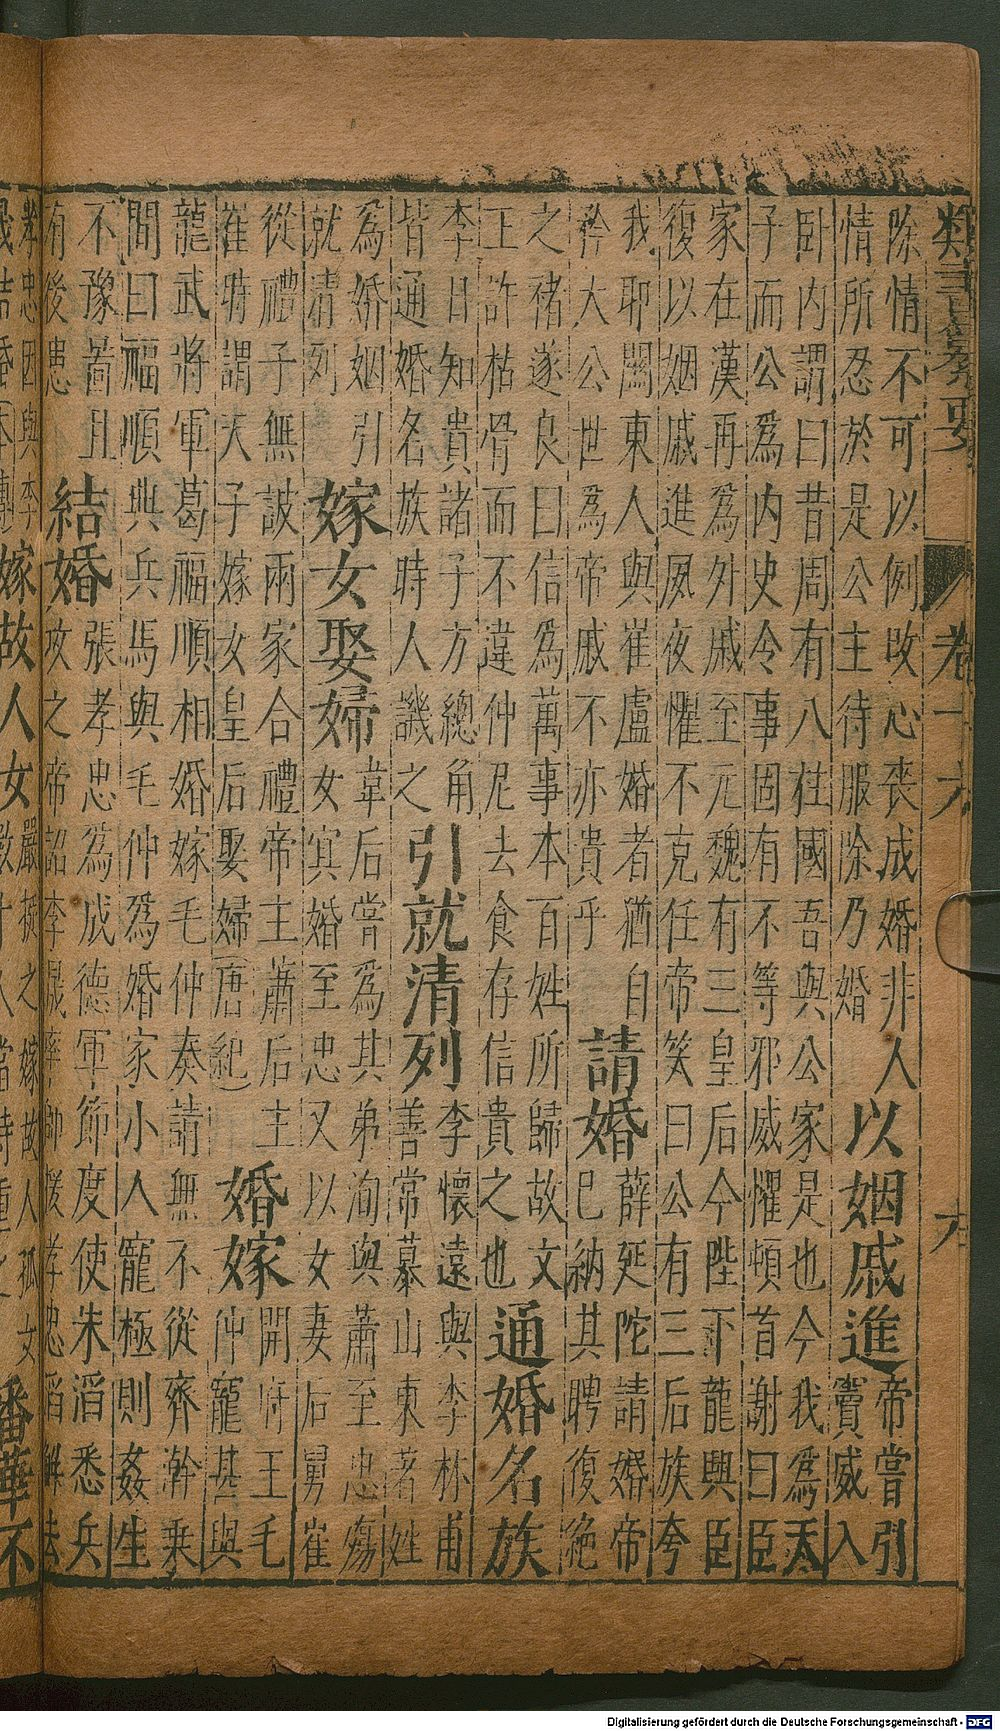 類書纂要　卷十六　六
除情不可以例改心喪成婚非人
情所忍於是公主待服除乃婚
以姻戚進
帝嘗引
竇威入
卧内謂曰昔周有八柱國吾與公家是也今我為天
子而公為内史令事固有不等邪威懼頓首謝曰臣
家在漢再為外戚至元魏有三皇后今陛下龍興臣
復以姻戚進夙夜懼不克任帝笑曰公有三后族夸
我耶關東人與崔盧婚者猶自
矜大公世為帝戚不亦貴乎
請婚
薛延陀請婚帝
已納其聘復絶
之褚遂良曰信為萬事本百姓所歸故文
王許枯骨而不違仲尼去食存信貴之也
通婚名族
李日知貴諸子方總角
皆通婚名族時人譏之
引就清列
李懷遠與李林甫
善常慕山東著姓
為婚姻引
就清列
嫁女娶婦
韋后嘗為其弟洵與蕭至忠殤
女冥婚至忠又以女妻后舅崔
從禮子無詖兩家合禮帝主蕭后主
崔時謂天子嫁女皇后娶婦唐紀
婚嫁
開府王毛
仲寵甚與
龍武將軍葛福順相婚嫁毛仲奏請無不從齊澣乘
間曰福順典兵馬與毛仲為婚家小人寵極則姦生
不豫啚且
有後患
結婚
張孝忠為成德軍節度使朱滔悉兵
攻之帝詔李晟率師援孝忠滔解去
孝忠因與李
晟結婚本傳
嫁故人女
嚴挺之嫁故人孤女
數十人當時重之
潘華不
Digitalisierung gefördert durch die Deutsche Forschungsgemeinschaft - DFG